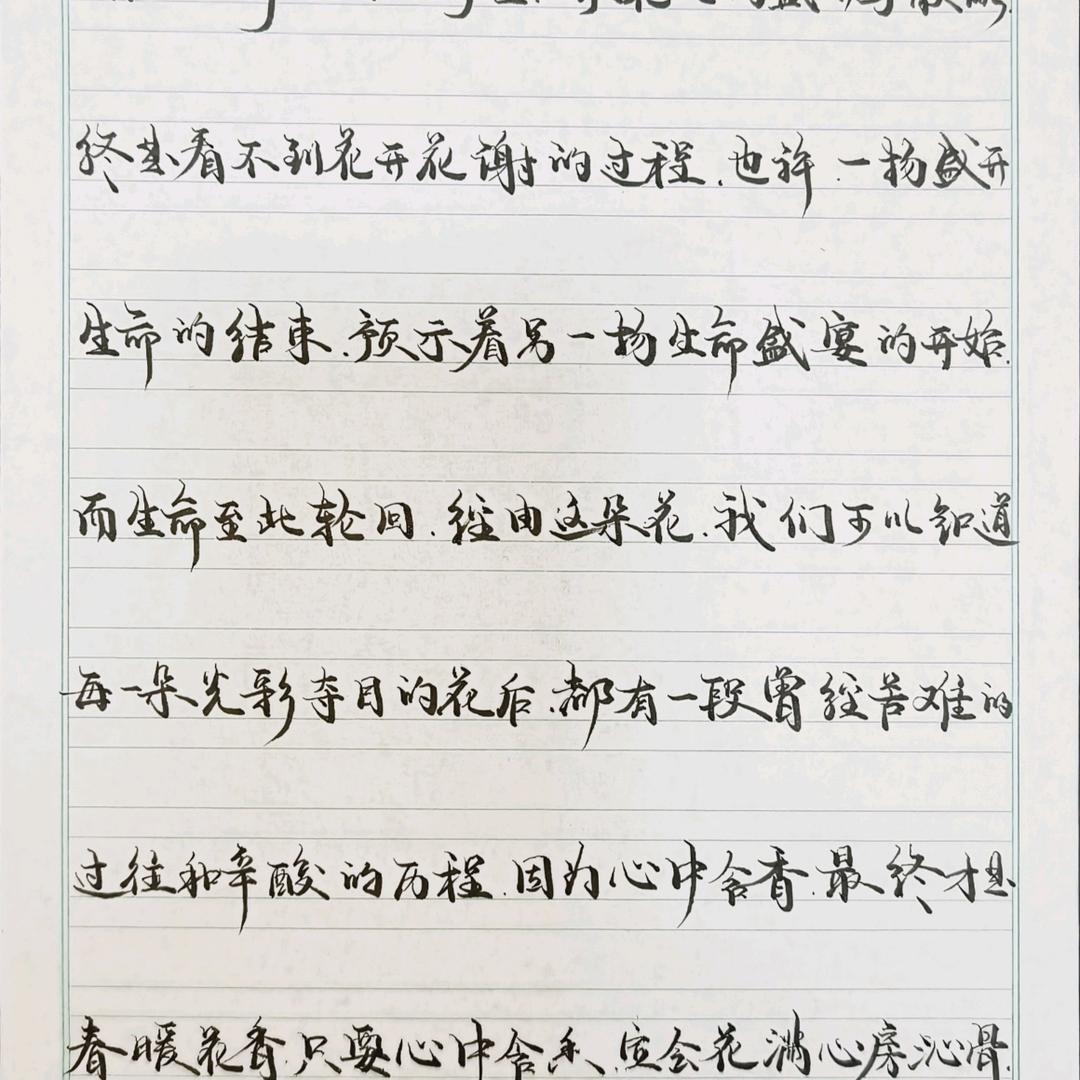 终其看不到花开花谢的过程.也许.一场盛开
生命的结束.预示着另一场生命盛宴的开始.
而生命至此轮回.经由这朵花.我们可以知道
每一朵光彩夺目的花后.都有一段曾经苦难的
过往和辛酸的历程.因为心中含香.最终才是
春暖花香.只要心中含香.定会花满心房沁骨.